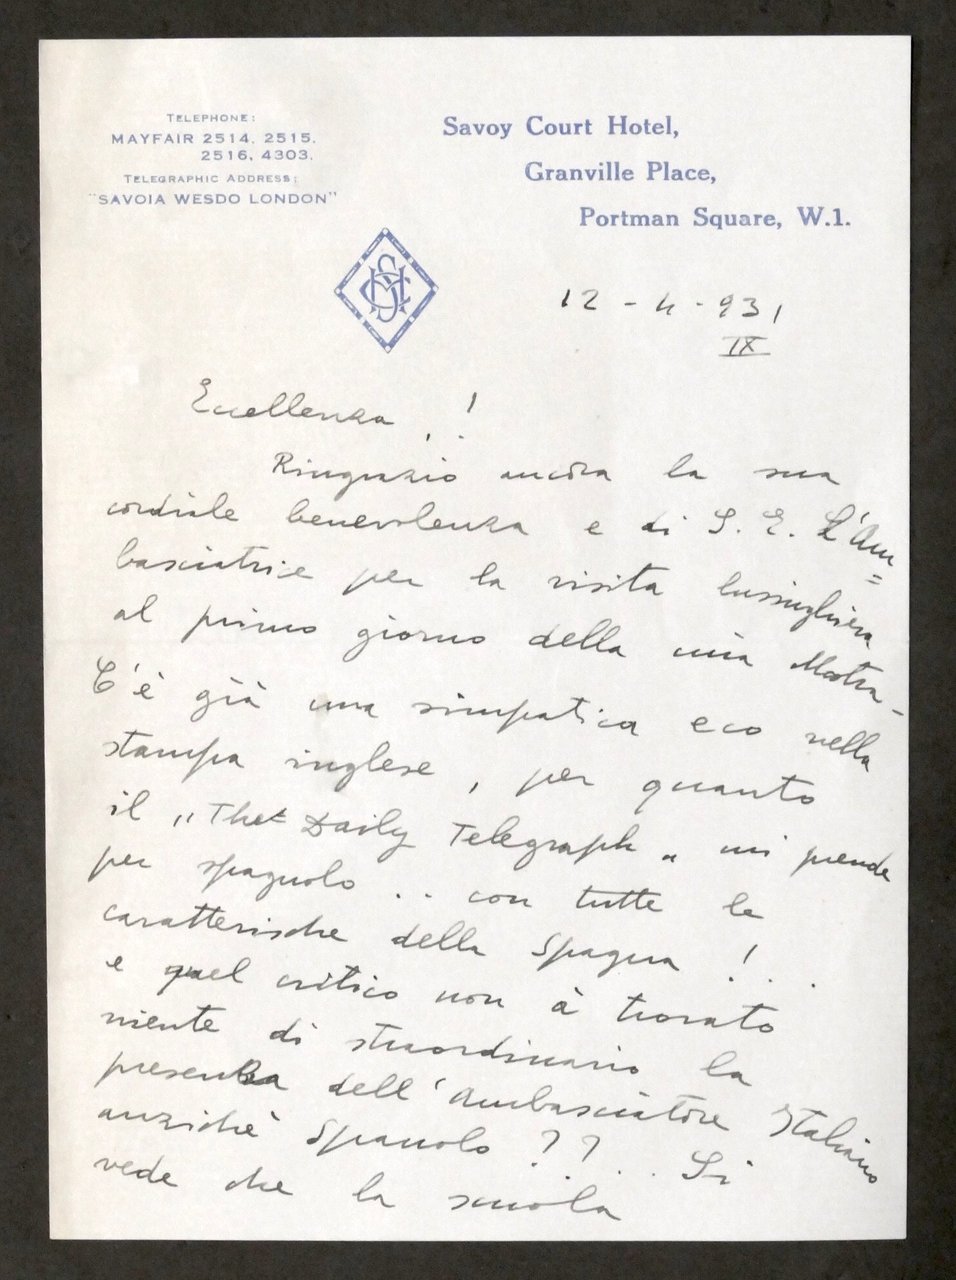 TELEPHONE:
MAYFAIR 2514, 2515.
2516, 4303.
TELEGRAPHIC ADDRESS:
"SAVOIA WESDO LONDON"
Savoy Court Hotel,
Granville Place,
Portman Square, W.1.
12 - 4 - 931
IX
Eccellenza, !
Ringrazio ancora la sua
cordiale benevolenza e di S. E. L'Am=
basciatrice per la visita lusinghiera
al primo giorno della mia Mostra-
C'è già una simpatica eco nella
stampa inglese, per quanto
il „The Daily Telegraph„ mi prende
per spagnolo .. con tutte le
caratteristiche della Spagna ! ..
e quel critico non à trovato
niente di straordinario la
presenza dell'Ambasciatore Italiano
anzichè Spanolo ?? .. Si
vede che la scuola